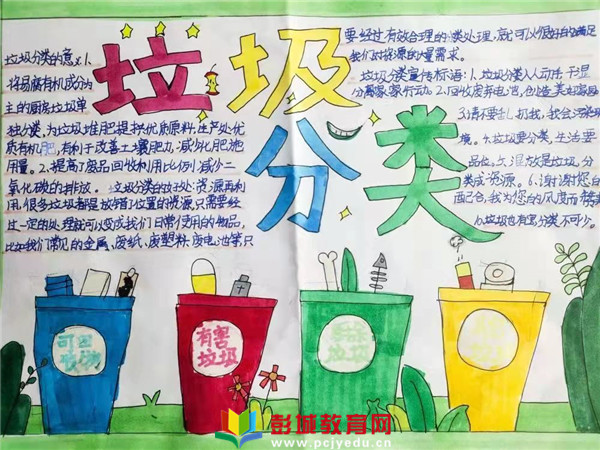 垃圾
分类
垃圾分类的意义1、
将易腐有机成分为
主的厨房垃圾单
独分类,为垃圾堆肥提供优质原料,生产处优
质有机肥,有利于改善土壤肥力,减少化肥施
用量。2、提高了废品回收利用比例,减少二
氧化碳的排放。 垃圾分类的好处:资源再利
用,很多垃圾都是放错了位置的资源,只需要经
过一定的处理就可以变成我们日常使用的物品,
比如我们常见的金属、废纸、废塑料、废电池等只
要经过有效合理的分类处理,就可以很好的满足
我们对资源的大量需求。
垃圾分类宣传标语:1、垃圾分类人人动手,
家家行动。2、回收废弃电池,创造美好家园
3、请不要乱扔我,我会污染环
境。4、垃圾要分类,生活要
品位。5、混放是垃圾,分
类成资源。6、谢谢您的
配合,我为您的风度而
6、垃圾也有害分类不可少。
可回
收物
有害
垃圾
垃圾
彭城教育网
www.pcjyedu.cn